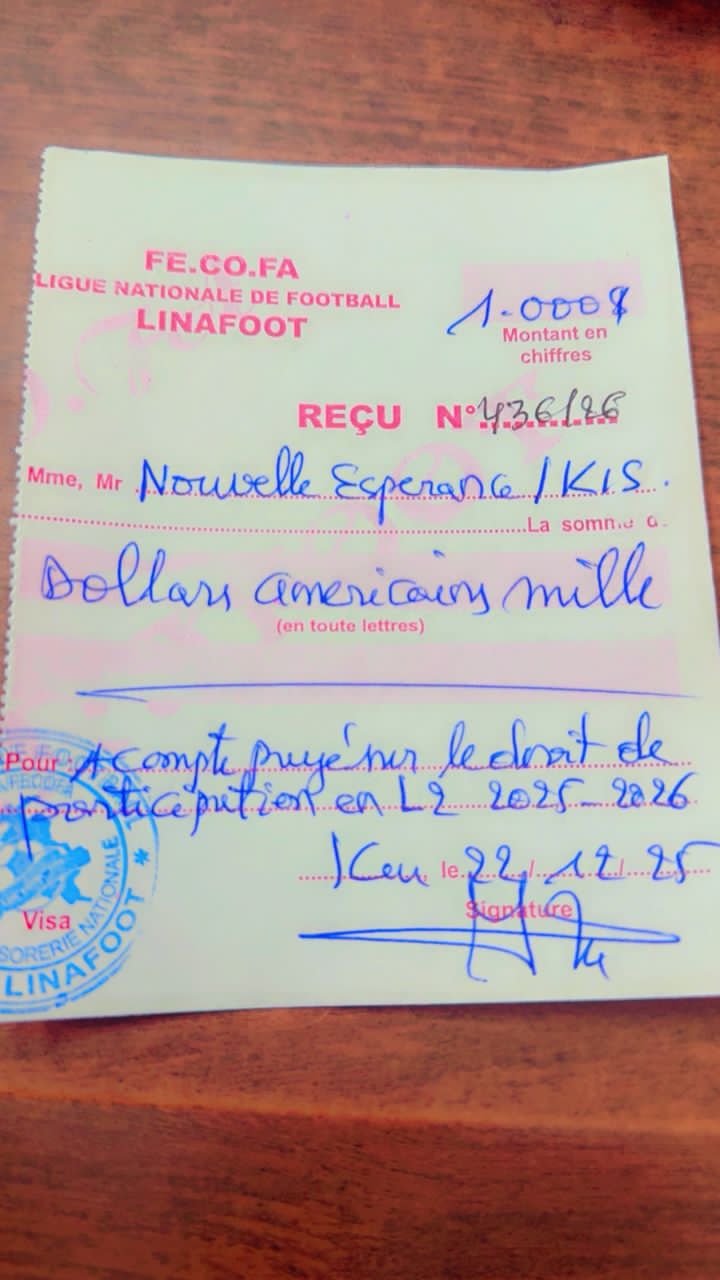 FE.CO.FA
LIGUE NATIONALE DE FOOTBALL
LINAFOOT
1.000$
Montant en
chiffres
REÇU N° 436/26
Mme, Mr Nouvelle Esperance / KIS.
La somme d
Dollars americains mille
(en toute lettres)
Pour : Acompte payé sur le droit de
participation en L2 2025-2026
Kin, le 22/12/25
Signature
Visa
FECOFA
SORERIE NATIONALE *
LINAFOOT